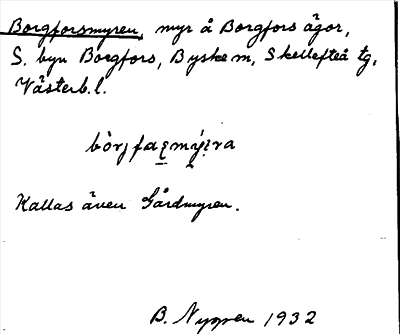 Borgforsmyren, myr å Borgfors ägor,
S. byn Borgfors, Byske m, Skellefteå tg,
Västerb. l.
Kallas även Gårdmyren.
B. Nyman 1932